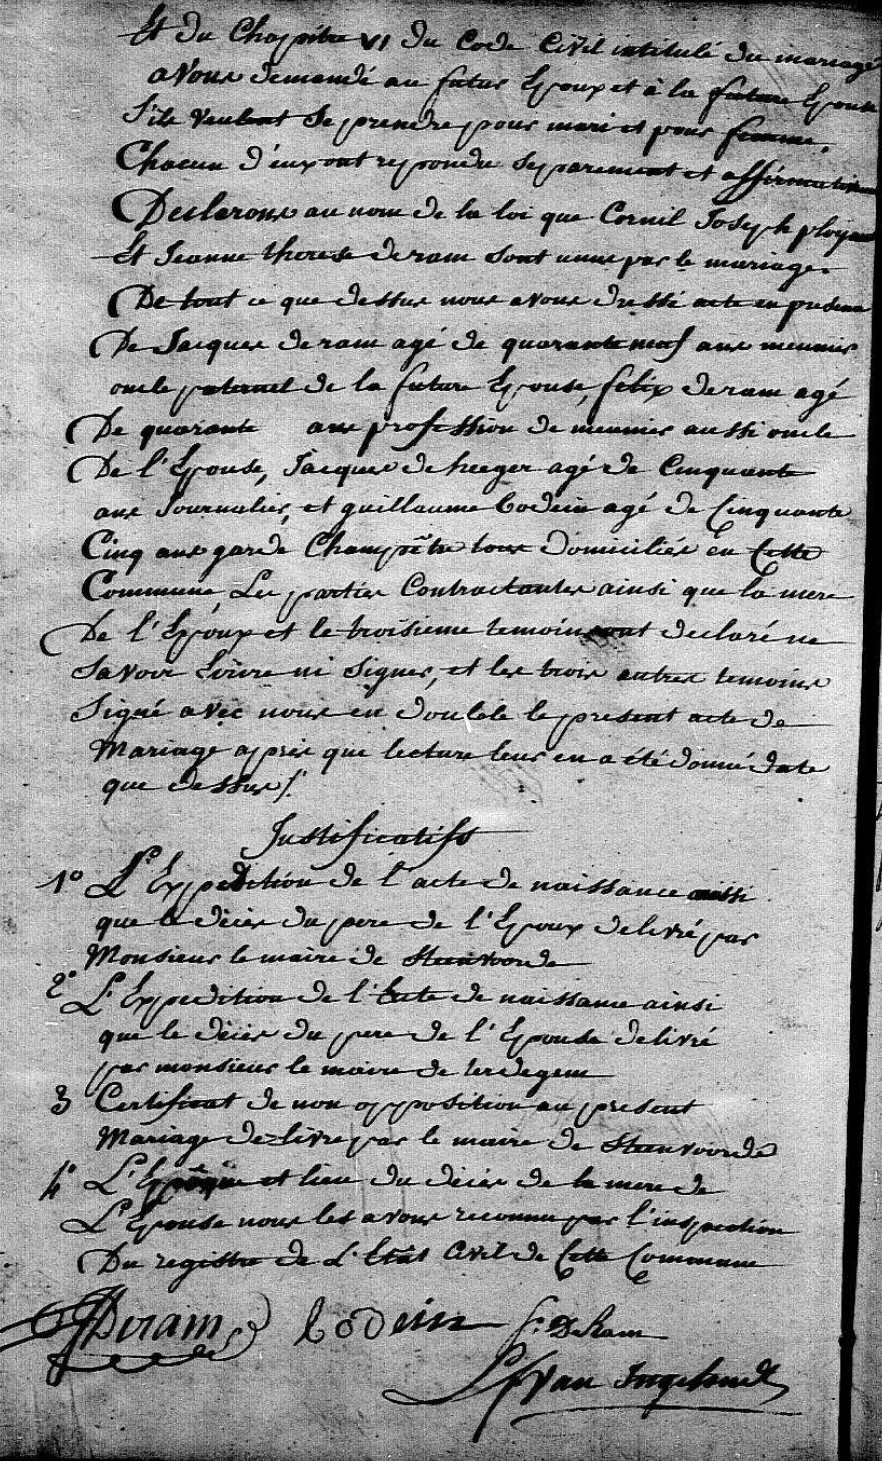 Et du Chapitre VI du Code Civil intitulé du mariage
avons demandé au futur Epoux et à la future Epouse
S'ils veulent Se prendre pour mari et pour femme.
Chacun d'eux ont repondu Separement et affirmativement
Declarons au nom de la loi que Cornil Joseph
Et Jeanne therese deram Sont unis par le mariage.
De tout ce que dessus nous avons dressé acte en presence
De Jacques deram agé de quarante neuf ans meunier
oncle paternel de la future Epouse, felix deram agé
De quarante ans profession de meunier aussi oncle
De l'Epouse, Jacques deheeger agé de Cinquante
ans Journalier, et guillaume Codein agé de Cinquante
Cinq ans garde Champêtre tous domiciliés en Cette
Commune, Les parties Contractantes ainsi que la mere
De l'Epoux et le troisieme temoin ont declaré ne
Savoir Ecrire ni Signer, et les trois autres temoins
Signé avec nous en double le present acte de
Mariage après que lecture leur en a été donné date
que dessus /.
Justificatifs
1° L'Expedition de l'acte de naissance ainssi
que le décès du pere de l'Epoux delivré par
Monsieur le maire de Steenvoorde
2° L'Expedition de l'acte de naissance ainsi
que le décès du pere de l'Epouse delivré
par monsieur le maire de terdegem
3 Certificat de non opposition au present
Mariage delivre par le maire de Steenvoorde
4° L'Epoque et lieu du décès de la mere de
L'Epouse nous les avons reconnu par l'inspection
Du registre de L'Etat Civil de Cette Commune
JDeram Codein f. DeRam
Van Ingelandt